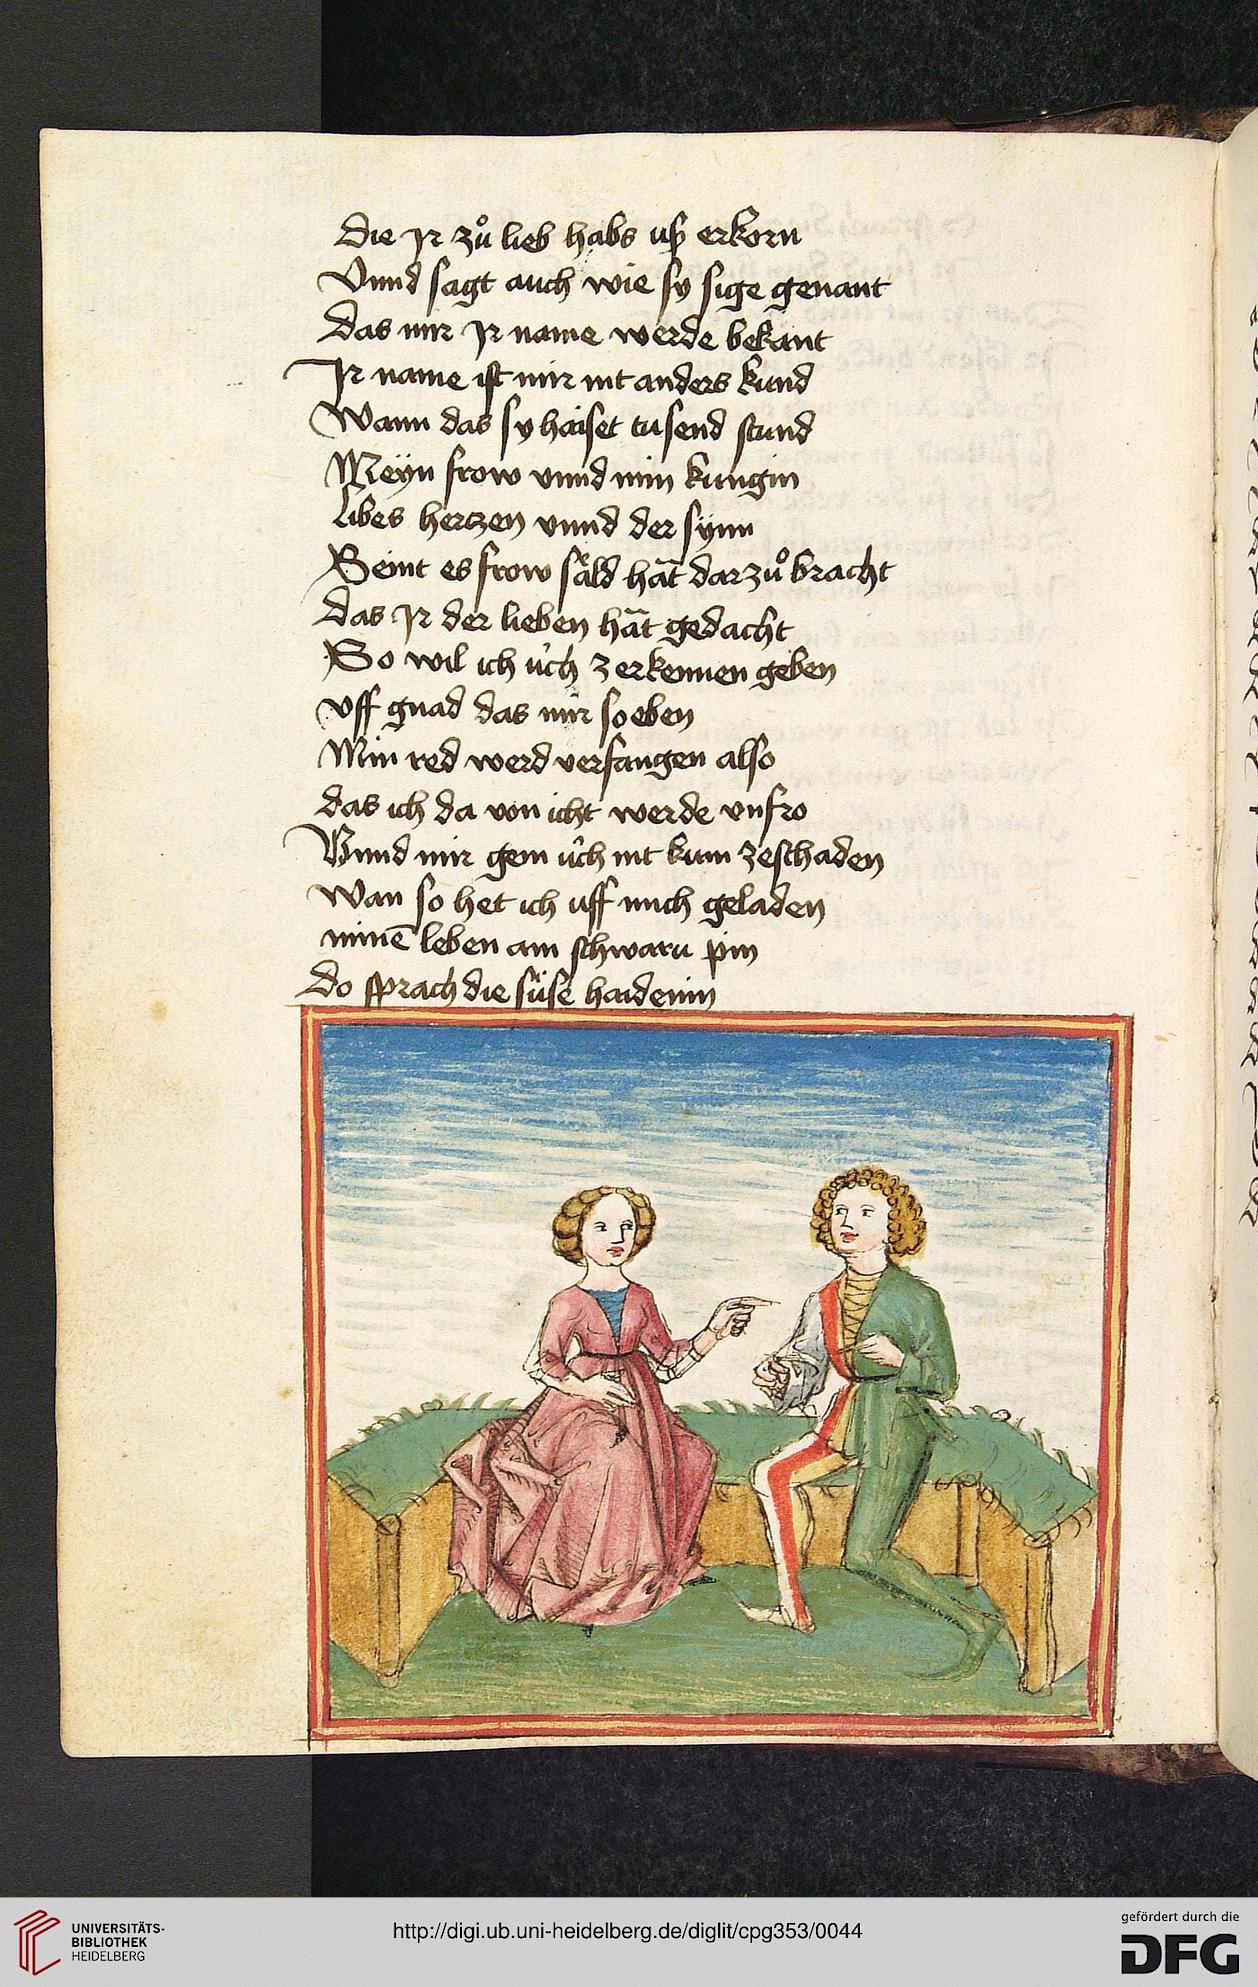 Die Jr zuͦ lieb habs uß erkorn
Vnnd sagt auch wie sy sige genant
Das mir Jr name werde bekant
Jr name ist mir nit anders kund
Wann das sy haiset tusend stund
Meyn frow vnnd min kungin
Libes hertzen vnnd der synn
Seint es frow säld hät darzuͦ bracht
Das Jr der lieben hät gedacht
So wil ich üch zerkennen geben
vff gnad das mir so eben
Min red werd verfangen also
das ich da von icht werde vnfro
Vnnd mir gem üch nit kum zeschaden
Wan so het ich uff mich geladen
minē leben ain schwaru pin
Do sprach die süse haidenin
UNIVERSITÄTS-
BIBLIOTHEK
HEIDELBERG
http://digi.ub.uni-heidelberg.de/diglit/cpg353/0044
gefördert durch die
DFG